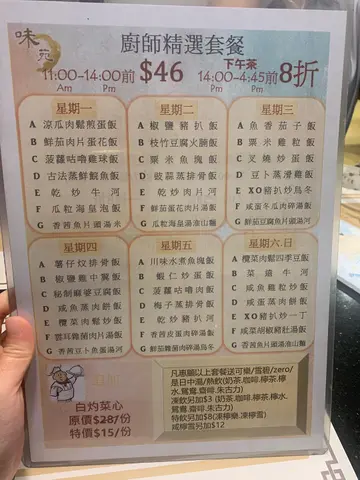 味苑
廚師精選套餐
11:00-14:00前 $46
Am Pm
下午茶
14:00-4:45前 8折
Pm Pm
星期一
A 涼瓜肉鬆煎蛋飯
B 鮮茄肉片蛋花飯
C 菠蘿咕嚕雞球飯
D 古法蒸鯇魚飯
E 乾炒牛河
F 瓜粒海皇泡飯
G 香茜魚片頭湯米
星期二
A 椒鹽豬扒飯
B 枝竹豆腐火腩飯
C 粟米魚塊飯
D 豉蒜蒸排骨飯
E 乾炒肉片麵
F 咸魚肉片頭湯飯
G 瓜粒海皇湯淮山麵
星期三
A 魚香茄子飯
B 粟米雞粒飯
C 叉燒炒蛋飯
D 豆卜蒸滑雞飯
E XO豬扒炒烏冬
F 咸蛋冬瓜肉碎湯飯
G 鮮茄豆腐魚片頭湯河
星期四
A 薯仔炆排骨飯
B 椒鹽雞中翼飯
C 秘制麻婆豆腐飯
D 咸魚蒸肉餅飯
E 欖菜肉鬆炒飯
F 雲耳雜菌肉片湯飯
G 香茜豆卜魚蛋湯河
星期五
A 川味水煮魚塊飯
B 蝦仁炒蛋飯
C 菠蘿咕嚕肉飯
D 梅子蒸排骨飯
E 乾炒豬扒飯
F 香茜皮蛋肉碎湯飯
G 鮮茄雜菌肉碎湯烏冬
星期六.日
A 欖菜肉鬆四季豆飯
B 菜遠牛河
C 咸魚雞粒炒飯
D 咸蛋蒸肉餅飯
E XO豬扒炒一丁
F 咸菜胡椒豬肚湯飯
G 香茜魚片頭湯淮山麵
白灼菜心
原價$28/份
特價$15/份
凡惠顧以上套餐送可樂/雪碧/zero/
是日中湯/熱飲(奶茶.咖啡.檸茶.檸
水.鴛鴦.齋啡.朱古力)
凍飲另加$3 (奶茶.咖啡.檸茶.檸
水.鴛鴦.齋啡.朱古力)
特飲另加$8(凍檸樂.凍檸雪)
咸檸雪另加$12